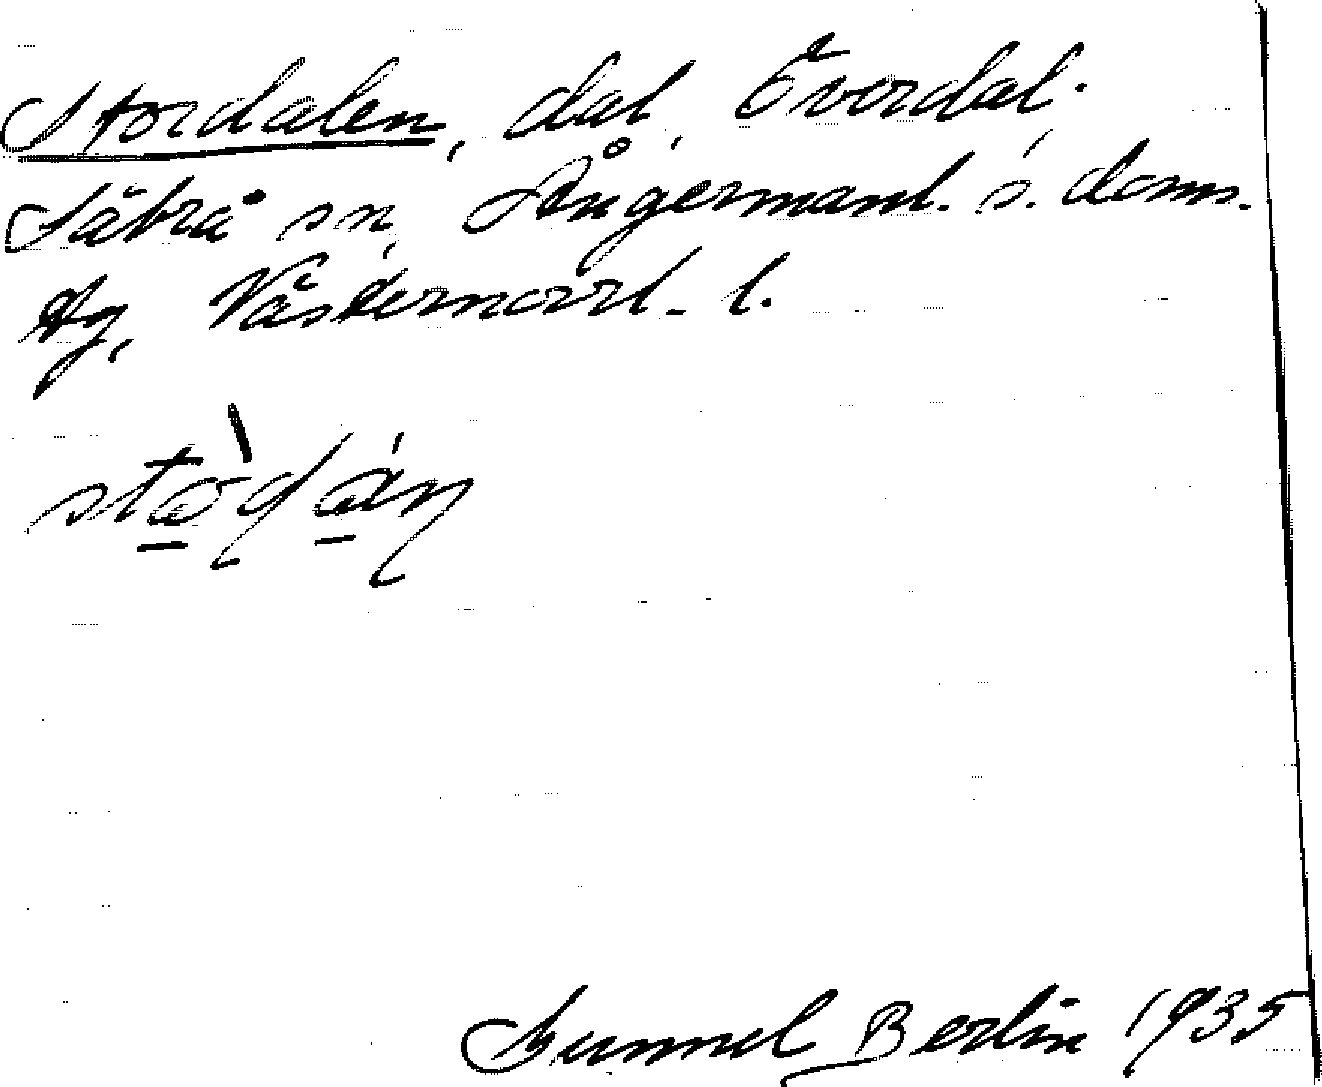 Stordalen, dal, Överdal.
Säbrå sn, Ångermanl. s. doms.
tg, Västernorrl. l.
Gunnel Berlin 1935